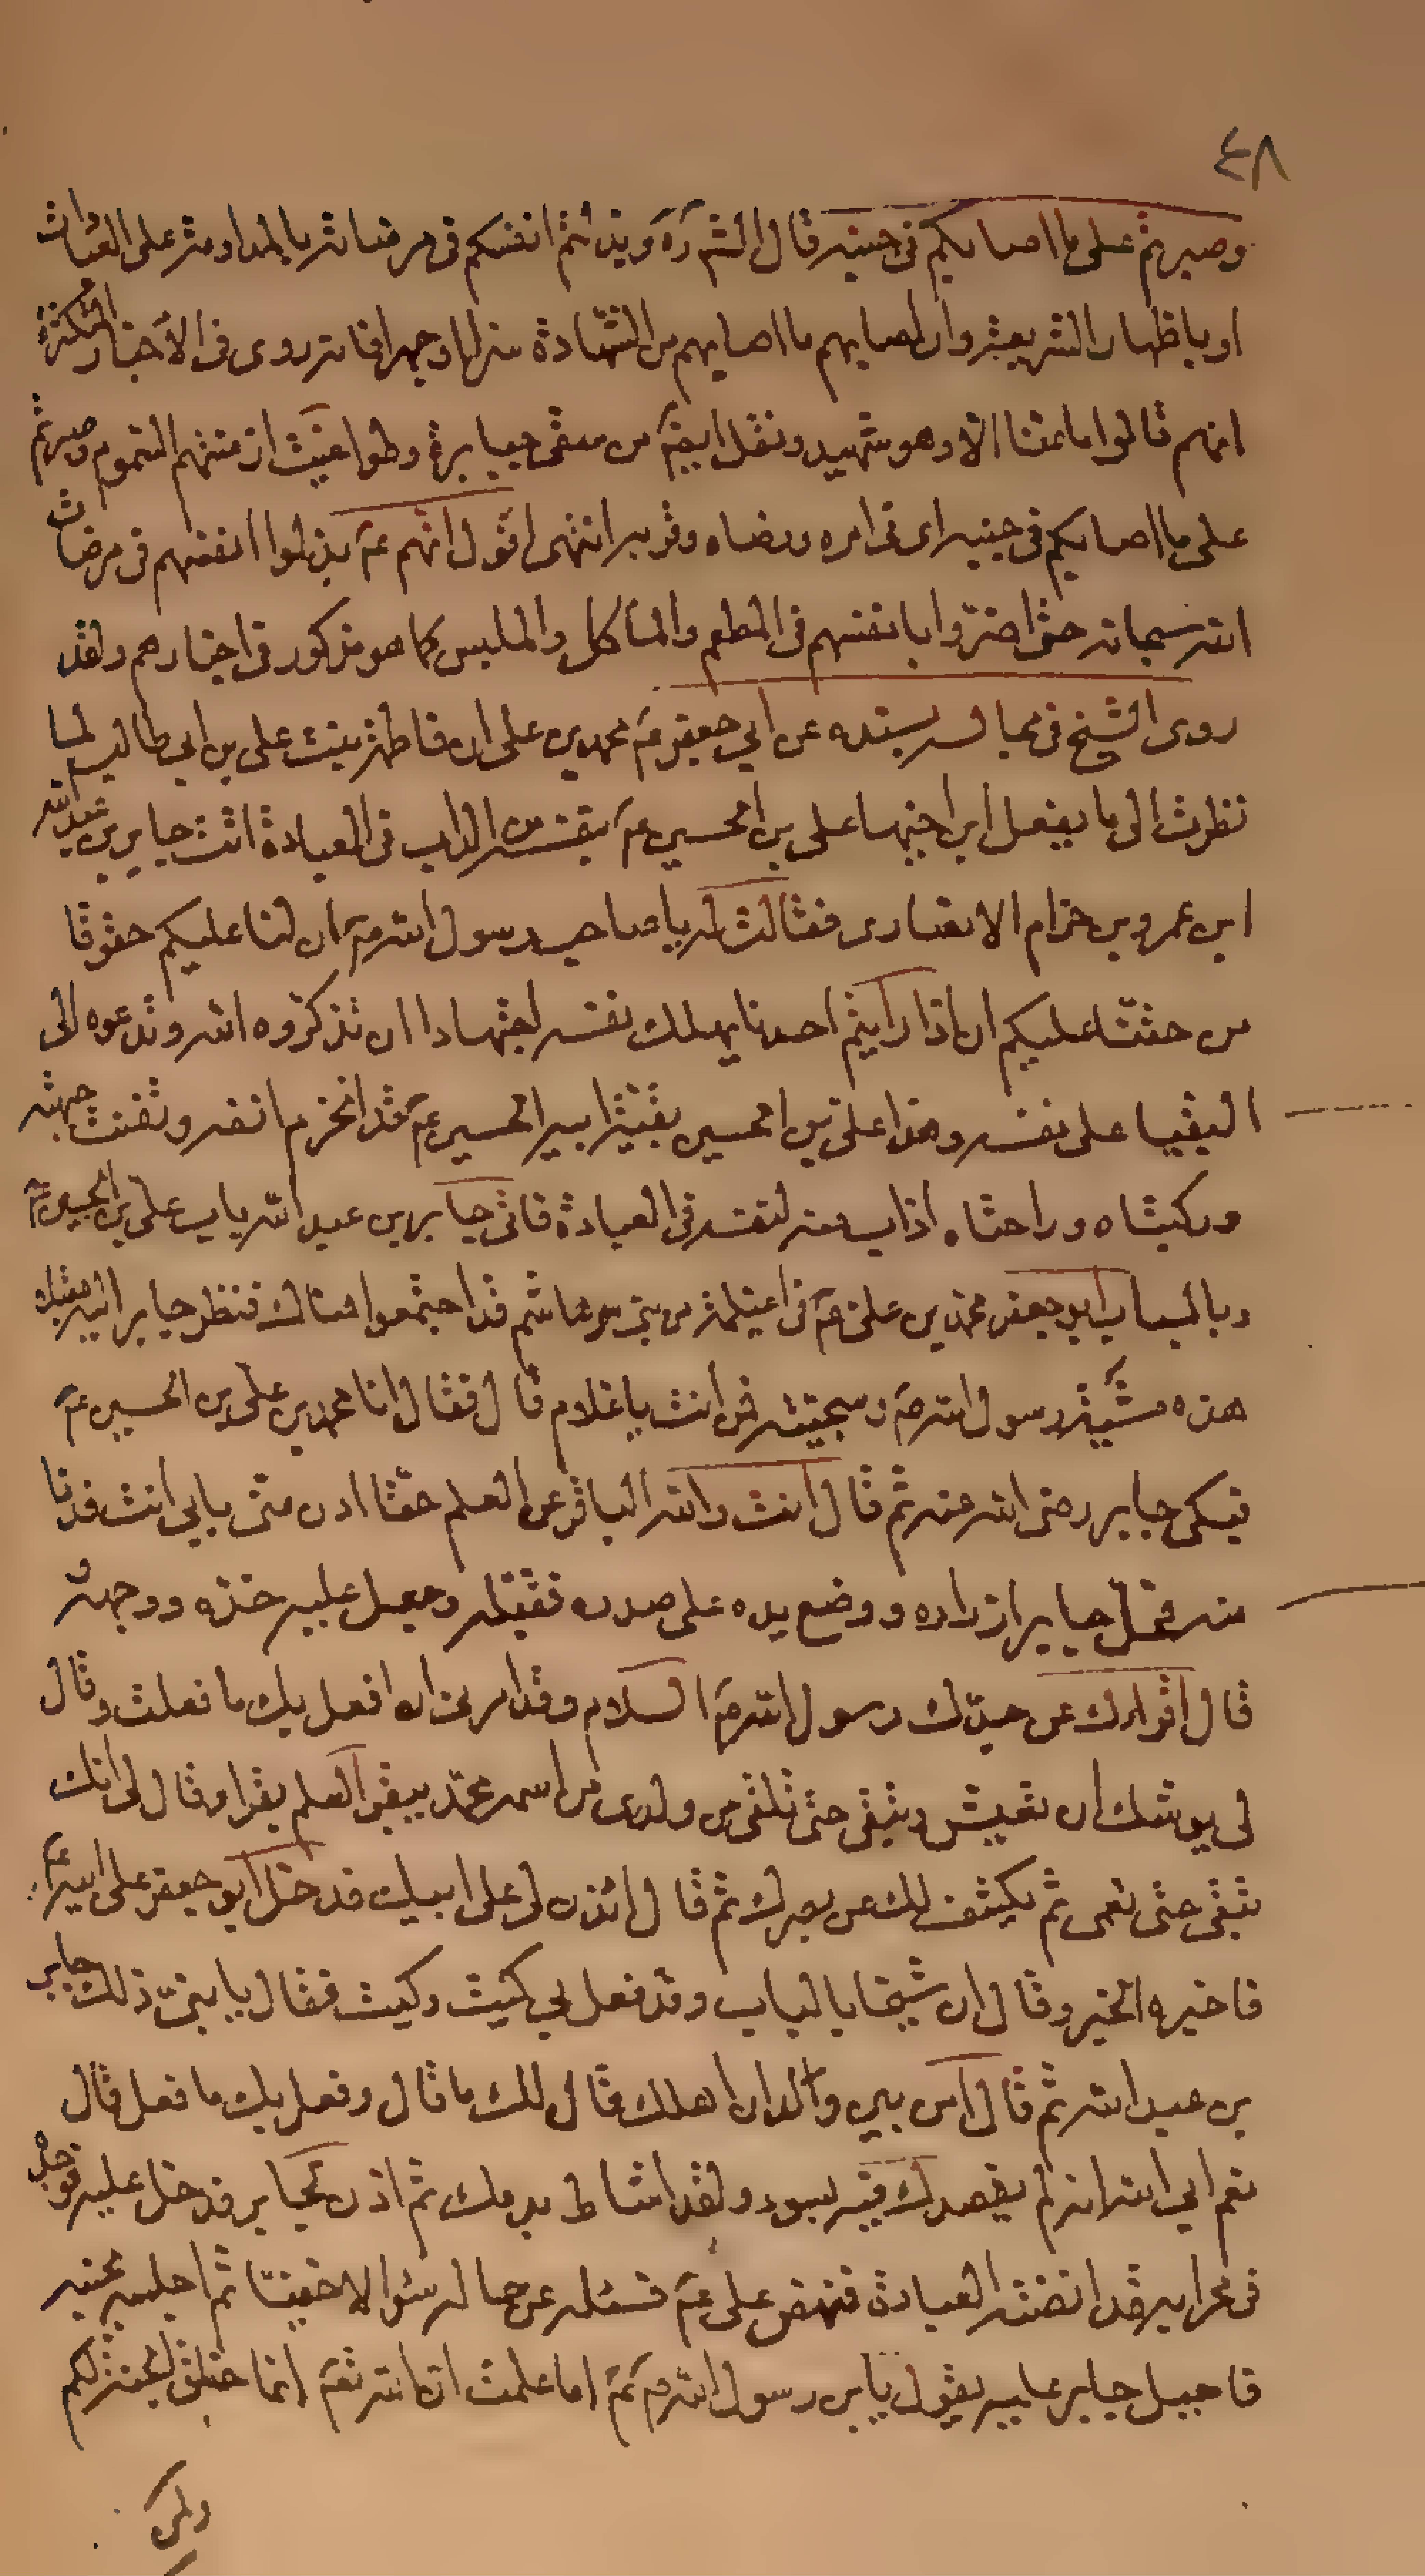 ٤٨
وصبرتم على ما اصابكم فى جنبه قال الشم ره وبذلتم انفسكم فى مرضاته بالمداومة على العبادات
او باظهار الشريعة وان اصابهم ما اصابهم من الشهادة سرا او جهرا فانه روى فى الاخبار المتكثرة
انهم قالوا ما منا الا وهو شهيد ونقل ايضم من سقى جبابرة وطواغيت ازمنتهم السموم وصبرتم
على ما اصابكم فى جنبه اى فى امره ورضاه وقربه انتهى اقول انهم عم بذلوا انفسهم فى مرضات
الله سبحانه حتى اضروا بانفسهم فى المطعم والماكل والملبس كما هو مذكور فى اخبارهم ولقد
روى الشيخ فى مجالسه بسنده عن ابي جعفر عم محمد بن على ان فاطمة بنت على بن ابي طالب لما
نظرت الى ما يفعل ابن اخيها على بن الحسين عم بنفسه من الداب فى العبادة اتت جابر بن عبد الله
ابن عمرو بن حزام الانصارى فقالت له يا صاحب رسول الله صم ان لنا عليكم حقوقا
من حقنا عليكم ان اذا رايتم احدنا يهلك نفسه اجتهادا ان تذكروه الله وتدعوه الى
البقيا على نفسه وهذا على بن الحسين بقية ابيه الحسين عم قد انخرم انفه وثفنت جبهته
وركبتاه وراحتاه اذاب منه لنفسه فى العبادة فاتى جابر بن عبد الله باب على بن الحسين عم
وبالباب ابو جعفر محمد بن على عم فى اغيلمة من بنى هاشم قد اجتمعوا هناك فنظر جابر اليه مقبلا
هذه مشية رسول الله صم وسجيته فمن انت يا غلام قال فقال انا محمد بن على بن الحسين عم
فبكى جابر رضى الله عنه ثم قال انت والله الباقر عن العلم حقا ادن منى بابي انت فدنا
منه فحل جابر ازراره ووضع يده على صدره فقبله وجعل عليه خده ووجهه
قال اقراك عن جدك رسول الله صم السلام وقد امرنى ان افعل بك ما فعلت وقال
لى يوشك ان تعيش وتبقى حتى تلقى من ولدى من اسمه محمد يبقر العلم بقرا وقال لى انك
تبقى حتى تعمى ثم يكشف لك عن بصرك ثم قال ائذن لى على ابيك فدخل ابو جعفر على ابيه عم
فاخبره الخبر وقال ان شيخا بالباب وقد فعل بي كيت وكيت فقال يا بنى ذلك جابر
بن عبد الله ثم قال امن بين ولدان اهلك قال لك ما قال وفعل بك ما فعل قال
نعم ابي الله انه لم يقصدك فيه بسوء ولقد اشاط بدمك ثم اذن لجابر فدخل عليه فوجده
فى محرابه قد انضته العبادة فنهض على عم فسئله عن حاله سئوالا خفيفا ثم اجلسه بجنبه
فاقبل جابر عليه يقول يابن رسول الله صم اما علمت ان الله تعم انما خلق الجنة لكم
ولمن